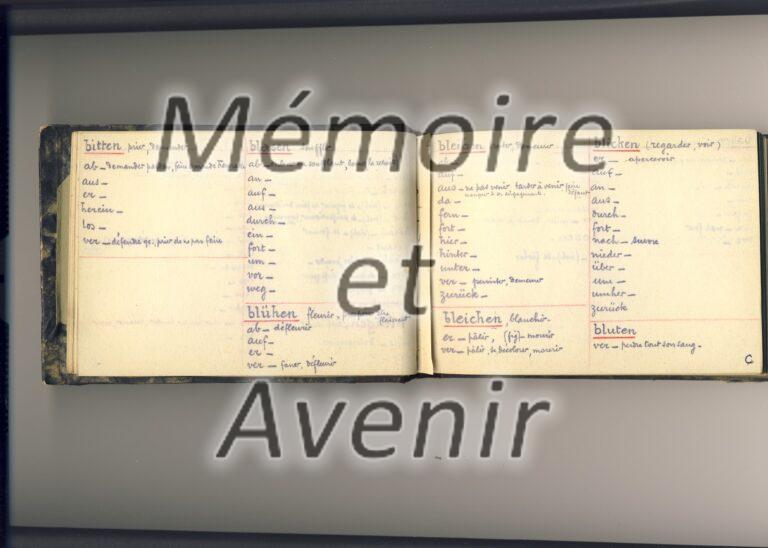 Mémoire
et
Avenir
bitten prier, demander
ab _ demander
aus _
er _
herein _
los _
ver _ défendre qc, prier de ne pas faire
blasen
ab _
an _
auf _
aus _
durch _
ein _
fort _
um _
vor _
weg _
blühen fleurir,
ab _ défleurir
auf _
er _
ver _ faner, défleurir
bleiben demeurer
ab _
auf _
aus _ ne pas venir tarder à venir faire défaut
manquer à ses engagements
da _
fern _
fort _
hier _
hinter _
unter _
ver _ persister, demeurer
zurück _
bleichen blanchir.
er _ pâlir, (fig) _ mourir
ver _ pâlir, se décolorer, mourir
blicken (regarder, voir)
er _ apercevoir
auf _
an _
aus _
durch _
fort _
nach _ suivre
nieder _
über _
um _
umher _
zurück
bluten
ver _ perdre tout son sang.
C